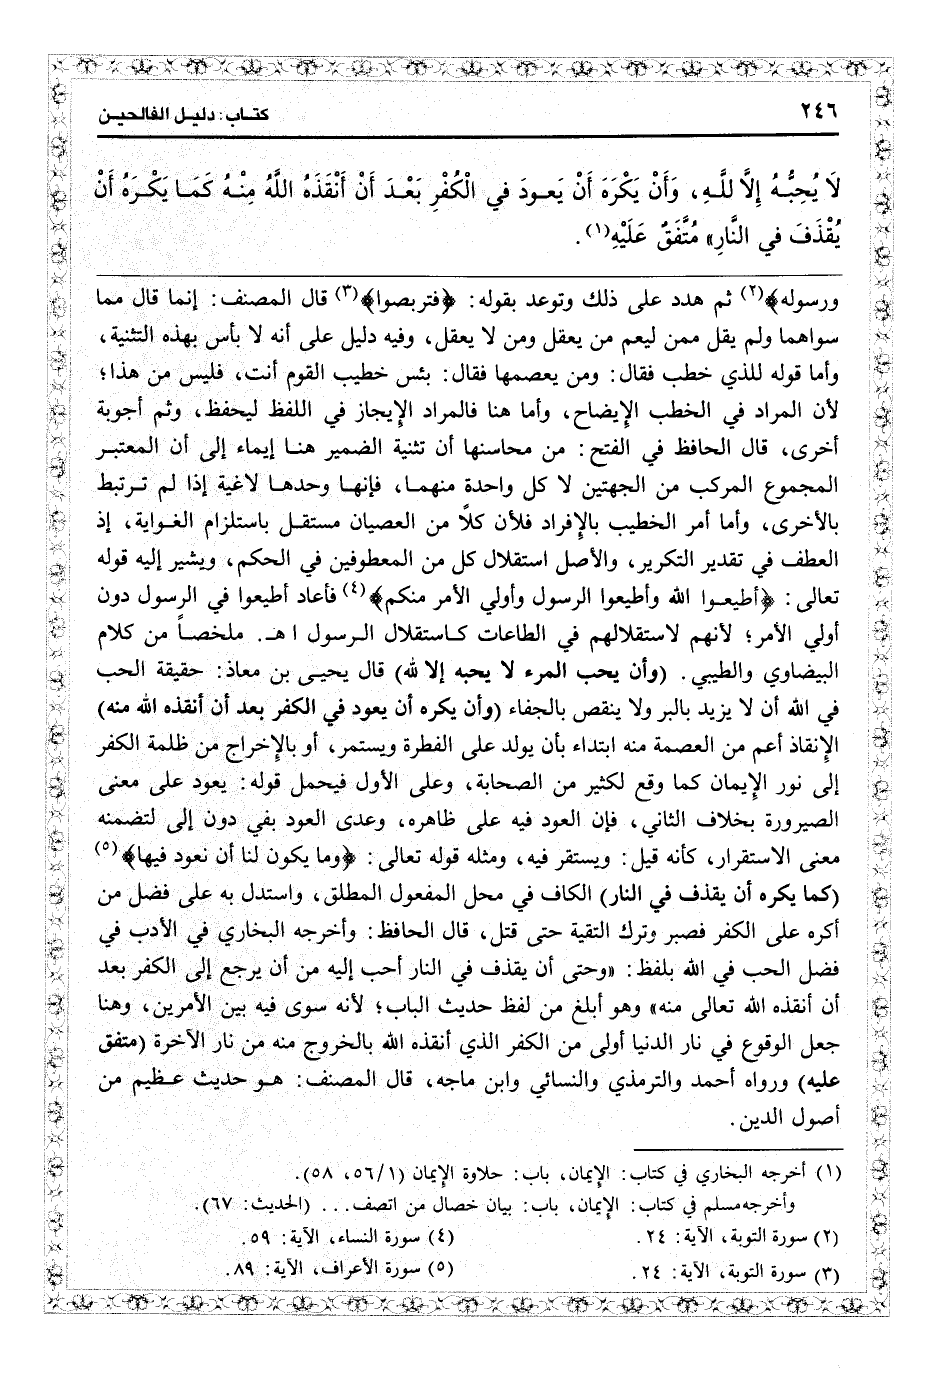 ٢٤٦
كتاب: دليل الفالحين
لَا يُحِبُّهُ إِلَّا للَّهِ، وَأَنْ يَكْرَهَ أَنْ يَعودَ في الْكُفْرِ بَعْدَ أَنْ أَنْقَذَهُ اللَّهُ مِنْهُ كَمَا يَكْرَهُ أَنْ
يُقْذَفَ في النَّارِ» مُتَّفَقٌ عَلَيْهِ(١).
ورسوله﴾(٢) ثم هدد على ذلك وتوعد بقوله: ﴿فتربصوا﴾(٣) قال المصنف: إنما قال مما
سواهما ولم يقل ممن ليعم من يعقل ومن لا يعقل، وفيه دليل على أنه لا بأس بهذه التثنية،
وأما قوله للذي خطب فقال: ومن يعصمها فقال: بئس خطيب القوم أنت، فليس من هذا؛
لأن المراد في الخطب الإيضاح، وأما هنا فالمراد الإيجاز في اللفظ ليحفظ، وثم أجوبة
أخرى، قال الحافظ في الفتح: من محاسنها أن تثنية الضمير هنا إيماء إلى أن المعتبر
المجموع المركب من الجهتين لا كل واحدة منهما، فإنها وحدها لاغية إذا لم ترتبط
بالأخرى، وأما أمر الخطيب بالإفراد فلأن كلاً من العصيان مستقل باستلزام الغواية، إذ
العطف في تقدير التكرير، والأصل استقلال كل من المعطوفين في الحكم، ويشير إليه قوله
تعالى: ﴿أطيعوا الله وأطيعوا الرسول وأولي الأمر منكم﴾(٤) فأعاد أطيعوا في الرسول دون
أولي الأمر؛ لأنهم لاستقلالهم في الطاعات كاستقلال الرسول ا هـ. ملخصاً من كلام
البيضاوي والطيبي. (وأن يحب المرء لا يحبه إلا لله) قال يحيى بن معاذ: حقيقة الحب
في الله أن لا يزيد بالبر ولا ينقص بالجفاء (وأن يكره أن يعود في الكفر بعد أن أنقذه الله منه)
الإنقاذ أعم من العصمة منه ابتداء بأن يولد على الفطرة ويستمر، أو بالإخراج من ظلمة الكفر
إلى نور الإيمان كما وقع لكثير من الصحابة، وعلى الأول فيحمل قوله: يعود على معنى
الصيرورة بخلاف الثاني، فإن العود فيه على ظاهره، وعدى العود بفي دون إلى لتضمنه
معنى الاستقرار، كأنه قيل: ويستقر فيه، ومثله قوله تعالى: ﴿وما يكون لنا أن نعود فيها﴾(٥)
(كما يكره أن يقذف في النار) الكاف في محل المفعول المطلق، واستدل به على فضل من
أكره على الكفر فصبر وترك التقية حتى قتل، قال الحافظ: وأخرجه البخاري في الأدب في
فضل الحب في الله بلفظ: «وحتى أن يقذف في النار أحب إليه من أن يرجع إلى الكفر بعد
أن أنقذه الله تعالى منه» وهو أبلغ من لفظ حديث الباب؛ لأنه سوى فيه بين الأمرين، وهنا
جعل الوقوع في نار الدنيا أولى من الكفر الذي أنقذه الله بالخروج منه من نار الآخرة (متفق
عليه) ورواه أحمد والترمذي والنسائي وابن ماجه، قال المصنف: هو حديث عظيم من
أصول الدين.
(١) أخرجه البخاري في كتاب: الإيمان، باب: حلاوة الإيمان (٥٦/١، ٥٨).
وأخرجه مسلم في كتاب: الإيمان، باب: بيان خصال من اتصف... (الحديث: ٦٧).
(٢) سورة التوبة، الآية: ٢٤.
(٤) سورة النساء، الآية: ٥٩.
(٣) سورة التوبة، الآية: ٢٤.
(٥) سورة الأعراف، الآية: ٨٩.